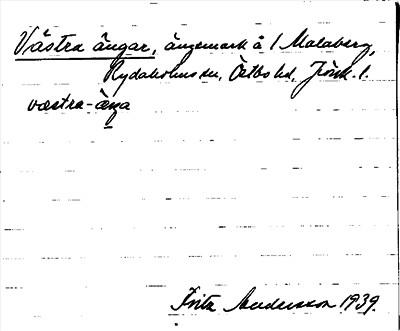 Västra ängar, ängsmark å 1 Malaberg,
Rydaholms sn, Östbo hd, Jönk. l.
västra- äŋa
Fritz Andersson 1939.